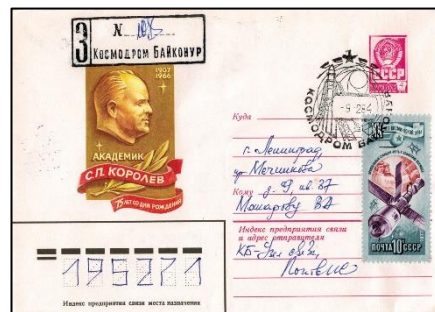 З
N
Космодром Байконур
1907
1966
АКАДЕМИК
С.П. КОРОЛЕВ
75 ЛЕТ СО ДНЯ РОЖДЕНИЯ
СССР
КОСМОДРОМ БАЙКОНУР
- 9-284
Куда
г. Ленинград
пр Мечникова
Кому
д. 9, кв. 37
Индекс предприятия связи
и адрес отправителя
ПОЧТА 10К СССР
195271
Индекс предприятия связи места назначения